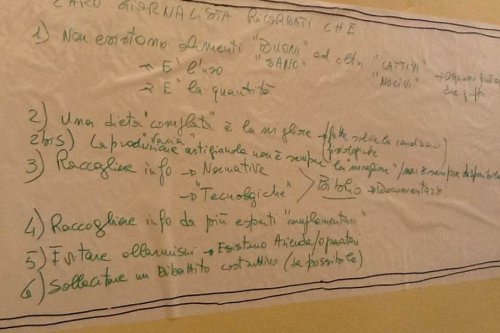 CARO GIORNALISTA RICORDATI CHE
1) Non esistono alimenti "BUONI" ed altri "CATTIVI"
"SANO" "NOCIVI"
→ E' l'uso
→ E' la quantità
2) Una dieta "completa" è la migliore
"varia"
2bis) La produzione artigianale non è sempre la migliore"/non è sempre disponibile
3) Raccogliere info → Normative
→ "Tecnologiche" > Biblio → documentare
4) Raccogliere info da più esperti "complementari"
5) Evitare allarmismi → Esistono Aziende/operatori
6) Sollecitare un Dibattito costruttivo (se possibile)